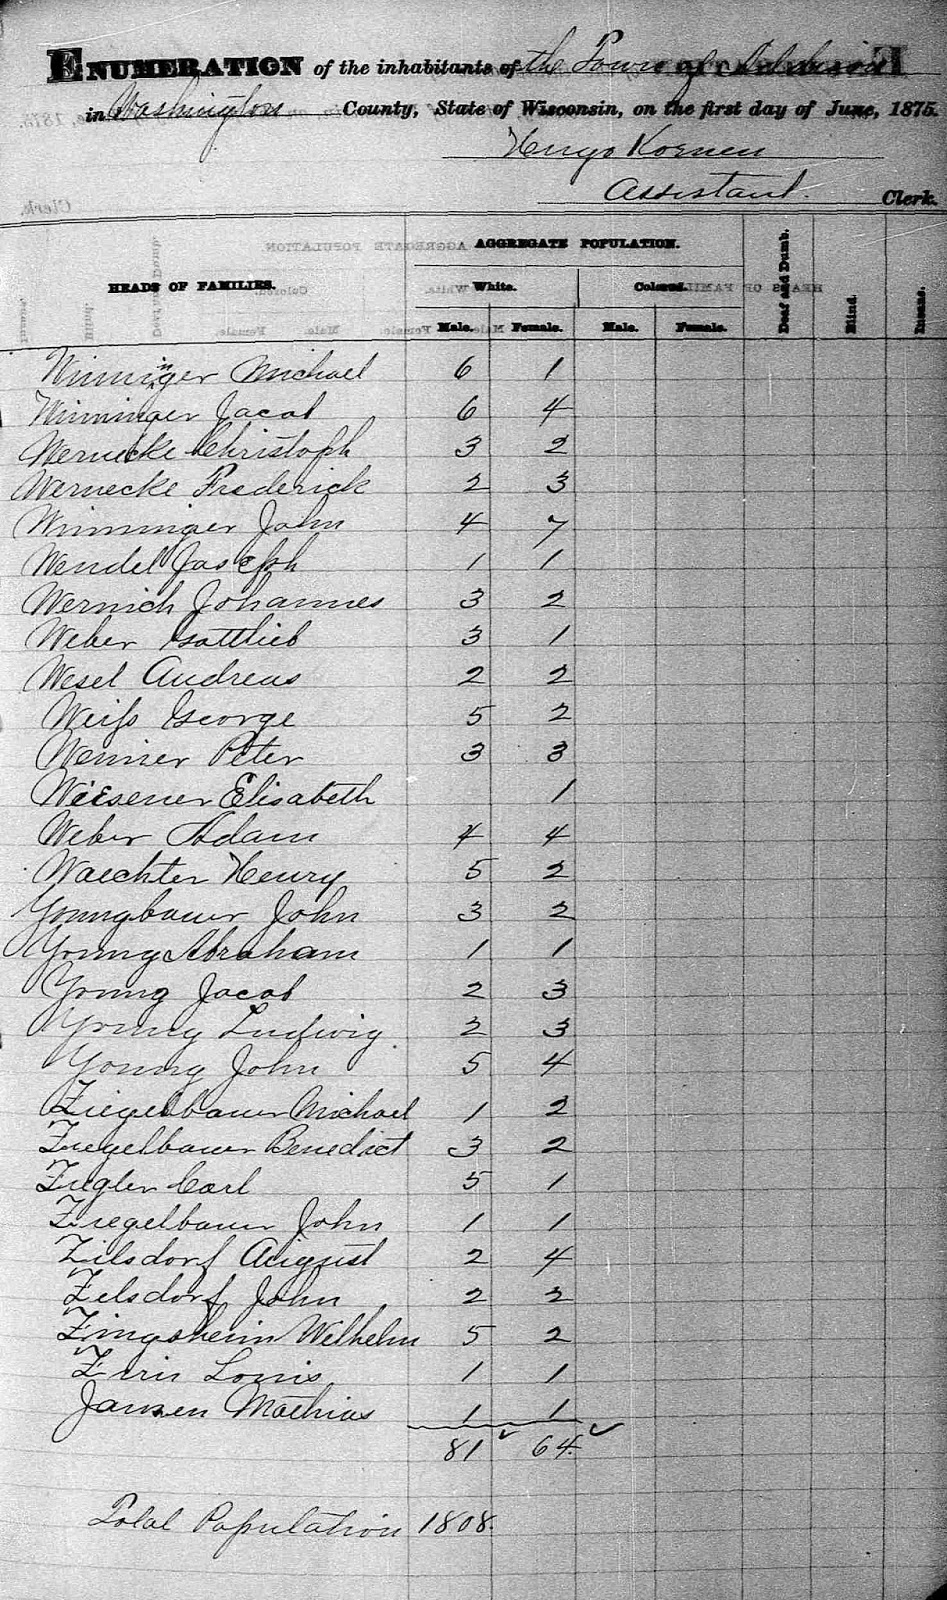 ENUMERATION of the inhabitants of the Town of Addison
in Washington County, State of Wisconsin, on the first day of June, 1875.
Hugo Koenen
Assistant. Clerk.
HEADS OF FAMILIES. AGGREGATE POPULATION. Deaf and Dumb. Blind. Insane.
White. Colored.
Male. Female. Male. Female.
Wininger Michael 6 1
Wininger Jacob 6 4
Wernecke Christoph 3 2
Wernecke Frederick 2 3
Winninger John 4 7
Wendel Joseph 1 1
Wernich Johannes 3 2
Weber Gottlieb 3 1
Wesel Andreas 2 2
Weiss George 5 2
Wenner Peter 3 3
Wiesener Elisabeth 1
Weber Adam 4 4
Waechter Henry 5 2
Youngbauer John 3 2
Young Abraham 1 1
Young Jacob 2 3
Young Ludwig 2 3
Young John 5 4
Ziegelbauer Michael 1 2
Ziegelbauer Benedict 3 2
Ziegler Carl 5 1
Ziegelbauer John 1 1
Zilsdorf August 2 4
Zelsdorf John 2 2
Zingsheim Wilhelm 5 2
Louis 1 1
Jansen Mathias 1 1
81 64
Total Population 1808.